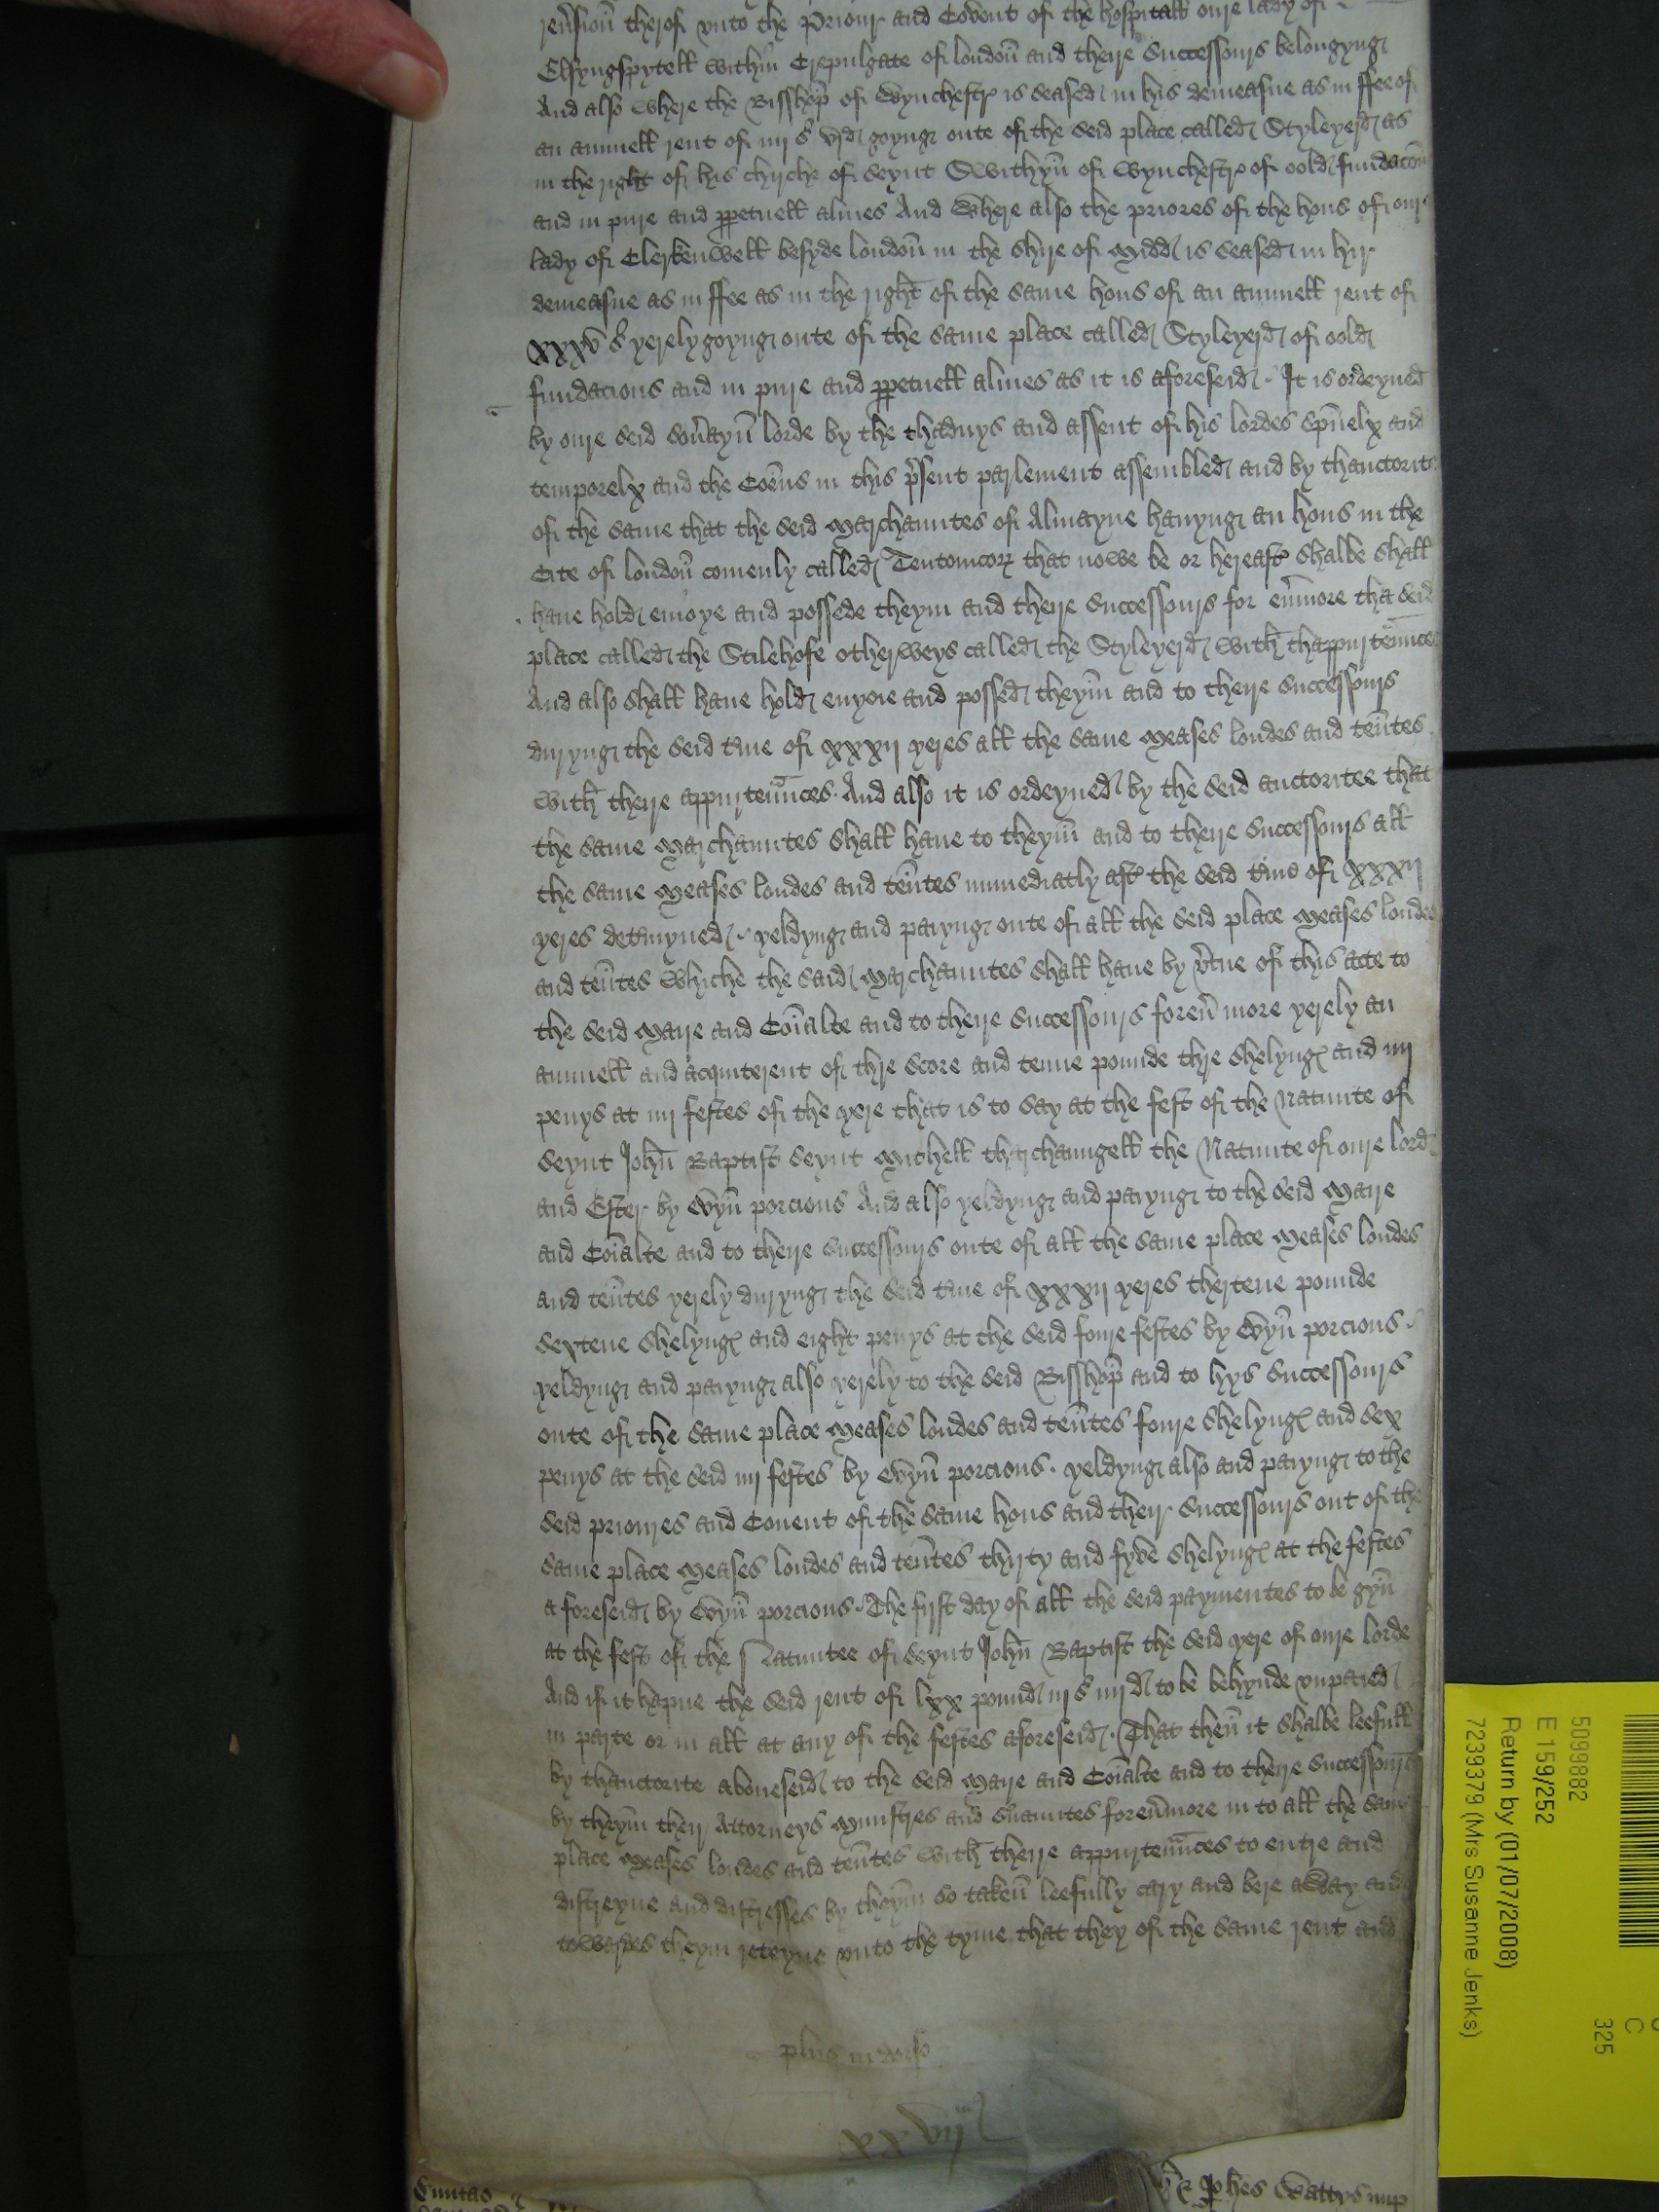 reũsioñ therof vnto the Priour and Covent of the hospitall oure lady of
Elsyngspytell within Crepulgate of londoñ and theire Successours belongyng
And also where the Bisshop̃ of Wynchestr̃ is seased in his demeasne as in ffee of
an annuell rent of iiij s̃ vjd goyng oute of the seid place called Styleyerd as
in the right of his chirche of seynt Swithyñ of Wynchestr̃ of oold fundacoñ
and in pure and ppetuell almes And where also the priores of the hous of our
lady of Clerkenwell besyde londoñ in the shire of Midd is seased in hir
demeasne as in ffee as in the right of the same hous of an annuell rent of
xxxv s̃ yerely goyng oute of the same place called Styleyerd of oold
fundacions and in pure and ppetuell almes as it is aforeseid. It is ordeyned
by oure seid soũayñ lorde by the thaduys and assent of his lordes sp̃uelx and
temporelx and the Coẽns in this p̃sent parlement assembled and by thauctorite
of the same that the seid Marchauntes of Almayne hauyng an hous in the
Cite of londoñ comenly called Teutonicorz that nowe be or hereaft̃ shalbe shall
haue hold enioye and possede theym and theire Successours for eũmore tha seid
place called the Stilehofe otherweys called the Styleyerd with thappurteñnces
And also shall haue hold enyoie and possed theym̃ and to theire Successours
duryng the seid t̃me of xxxij yeres all the same Meases londes and teñtes
with theire appurteñnces. And also it is ordeyned by the seid auctoritee that
the same Marchauntes shall haue to theym̃ and to theire Successours all
the same Meases londes and teñtes immediatly aft̃ the seid t̃me of xxxij
yeres det̃myned. yeldyng and paiyng oute of all the seid place Meases londes
and teñtes whiche the said Marchauntes shall haue by ṽtue of this acte to
the seid Maire and Coĩalte and to theire Successours foreũ more yerely an
annuell and acquiterent of thre score and tenne pounde thre shelyng and iiij
penys at iiij festes of the yere that is to say at the fest of the Natiuite of
seynt Johñ Baptist seynt Michell tharchaungell the Natiuite of oure lord
and Ester by evyñ porcions And also yeldyng and paiyng to the seid Maire
and Coĩalte and to theire Successours oute of all the same place Meases londes
and teñtes yerely duryng the seid t̃me of xxxij yeres thertene pounde
sextene shelyng and eight penys at the seid foure festes by evyñ porcions.
yeldyng and paiyng also yerely to the seid Bisshop̃ and to hys Successours
oute of the same place Meases londes and teñtes foure shelyng and sex
penys at the seid iiij festes by evyñ porcions. yeldyng also and paiyng to the
seid prioures and Couent of the same hous and their Successours out of the
same place Meases londes and teñtes thirty and fyve shelyng at the festes
aforeseid by evyñ porcions. The first day of all the seid paymentes to be gyñ
at the fest of the Natiuitee of seynt Johñ Baptist the seid yere of oure lorde
And if it hapne the seid rent of lxx pound iij s̃ iiij d to be behynde vnpaied
in parte or in all at any of the festes aforeseid. That theñ it shalbe leefull
by thauctorite aboueseid to the seid Maire and Coĩalte and to theire Successours
by theym̃ their Attorneys Ministres and s̃uauntes foreũmore in to all the same
place Meases londes and teñtes with theire appurteñnces to entre and
distreyne and distresses by theym̃ so takeñ leefully cary and bere away and
towardes theym reteyne vnto the tyme that they of the same rent and
plus in dorso
xxviij
Ciuitas
Johes Wattys nup
5099882
E 159/252
Return by (01/07/2008)
7239379 (Mrs Susanne Jenks)
C
325